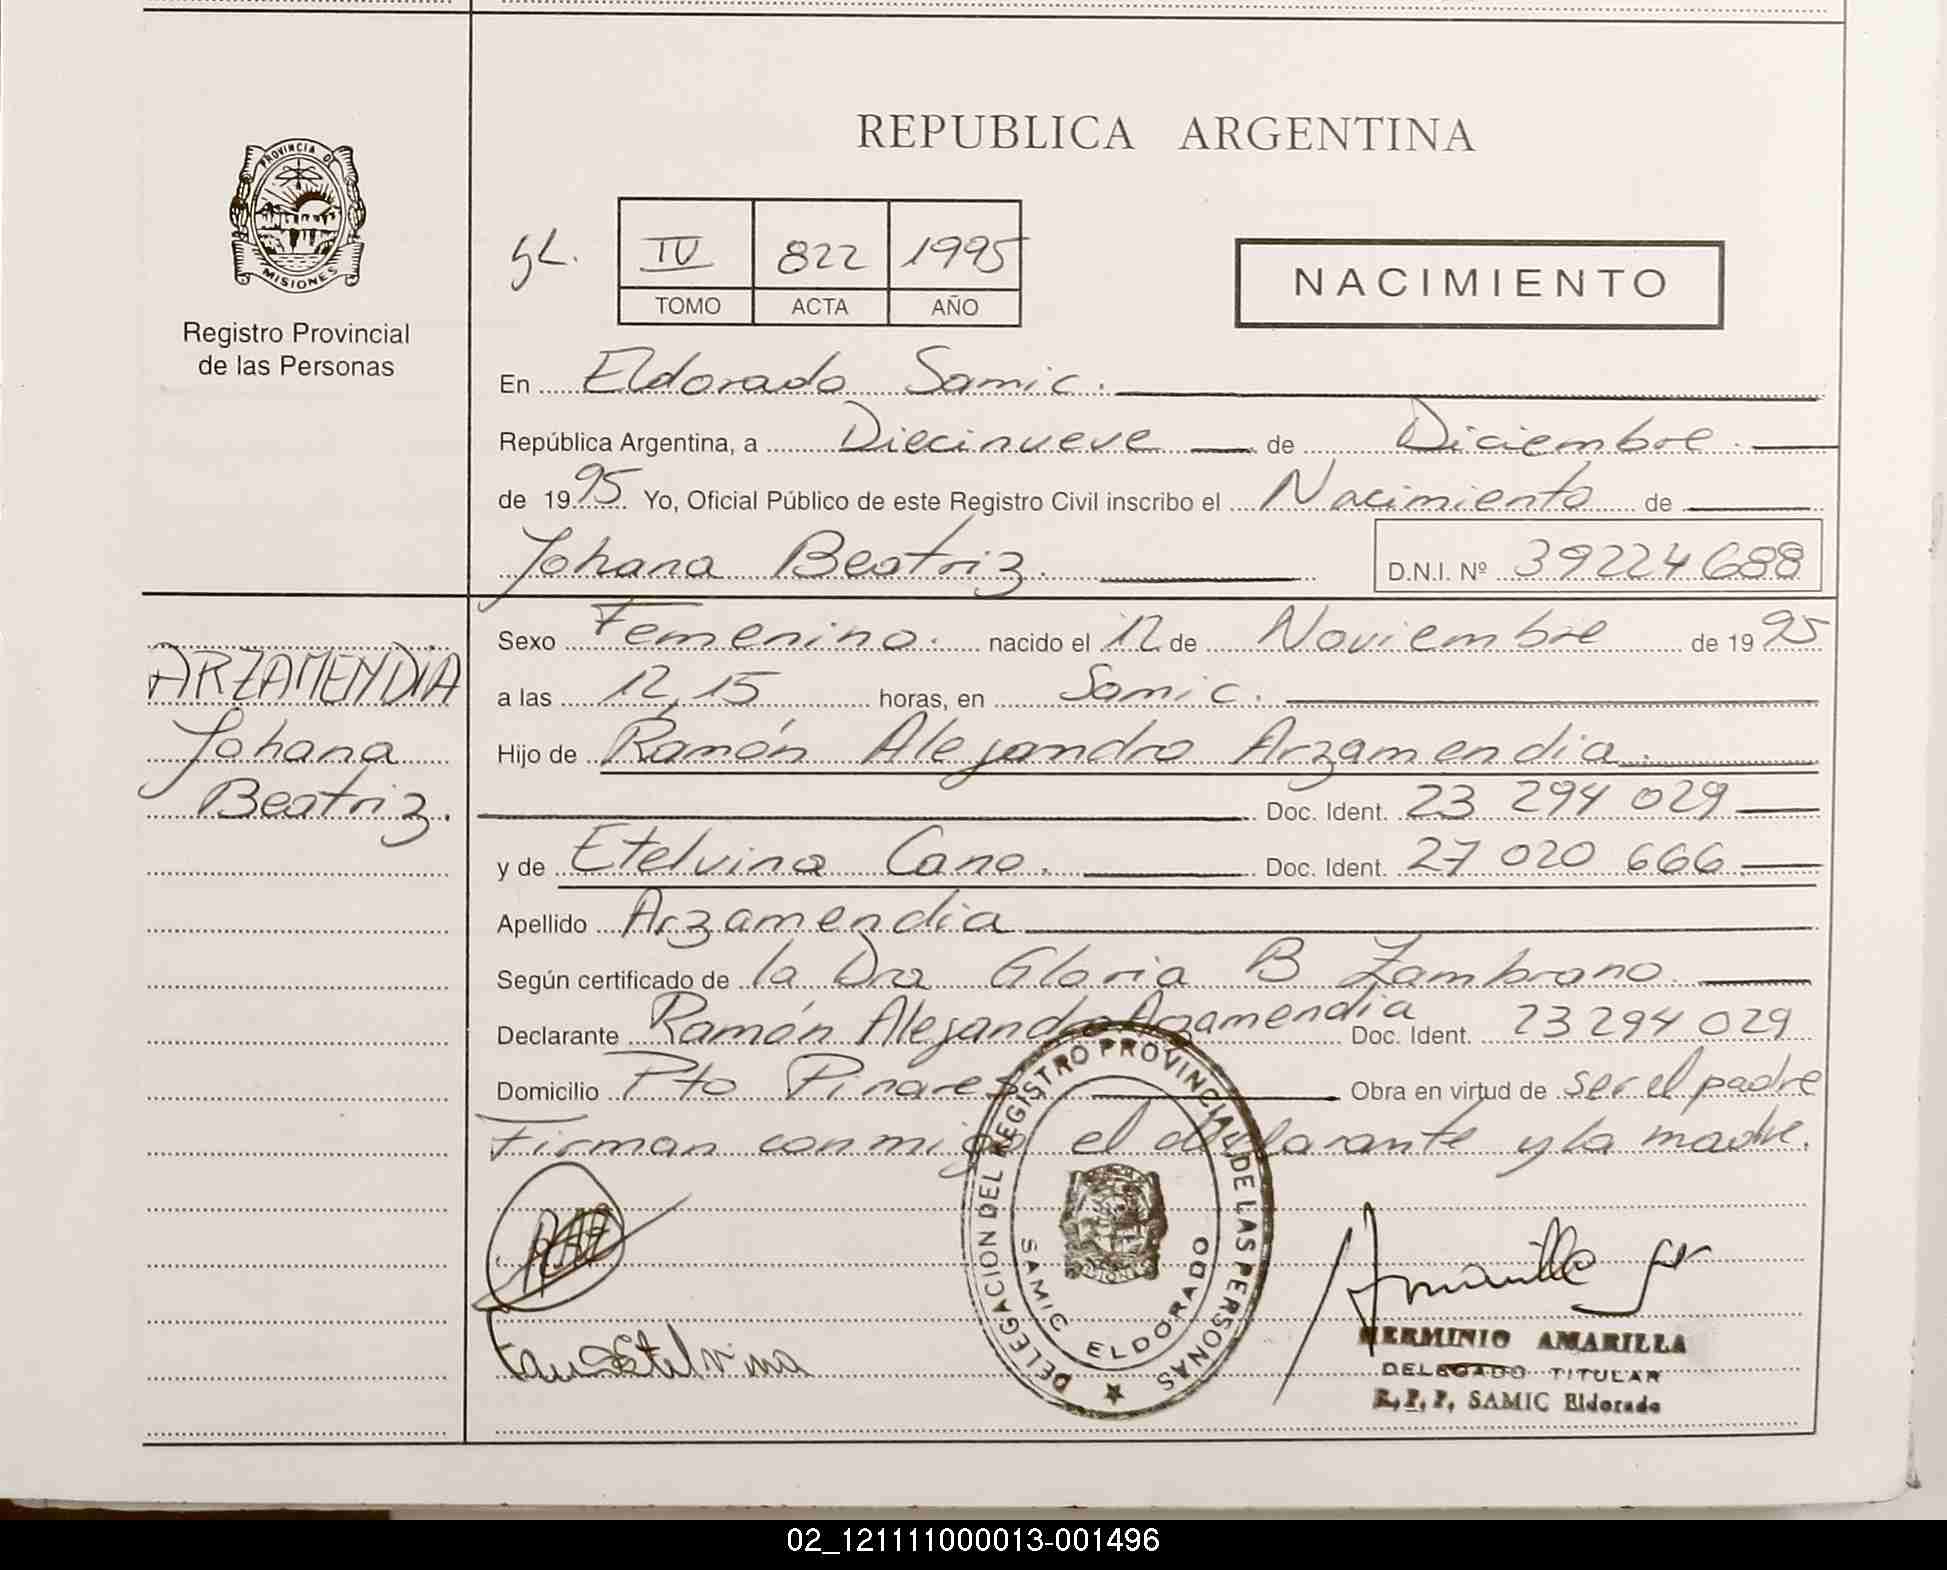 REPUBLICA ARGENTINA
PROVINCIA DE
MISIONES
Registro Provincial
de las Personas
gL. IV 822 1995
TOMO ACTA AÑO
NACIMIENTO
En Eldorado Samic.
República Argentina, a Diecinueve de Diciembre.
de 1995 Yo, Oficial Público de este Registro Civil inscribo el Nacimiento de
Johana Beatriz. D.N.I. Nº 39224688
ARZAMENDIA
Johana
Beatriz.
Sexo Femenino. nacido el 12 de Noviembre de 1995
a las 12,15 horas, en Samic.
Hijo de Ramón Alejandro Arzamendia.
Doc. Ident. 23 294 029
y de Etelvina Cano. Doc. Ident. 27 020 666
Apellido Arzamendia
Según certificado de la Dra Gloria B Zambrano.
Declarante Ramón Alejandro Arzamendia Doc. Ident. 23294 029
Domicilio Pto Pinares Obra en virtud de ser el padre
Firman conmigo el declarante y la madre.
DELEGACION DEL REGISTRO PROVINCIAL DE LAS PERSONAS
SAMIC ELDORADO
Cano Etelvina
HERMINIO AMARILLA
DELEGADO TITULAR
R.P.P. SAMIC Eldorado
02_121111000013-001496